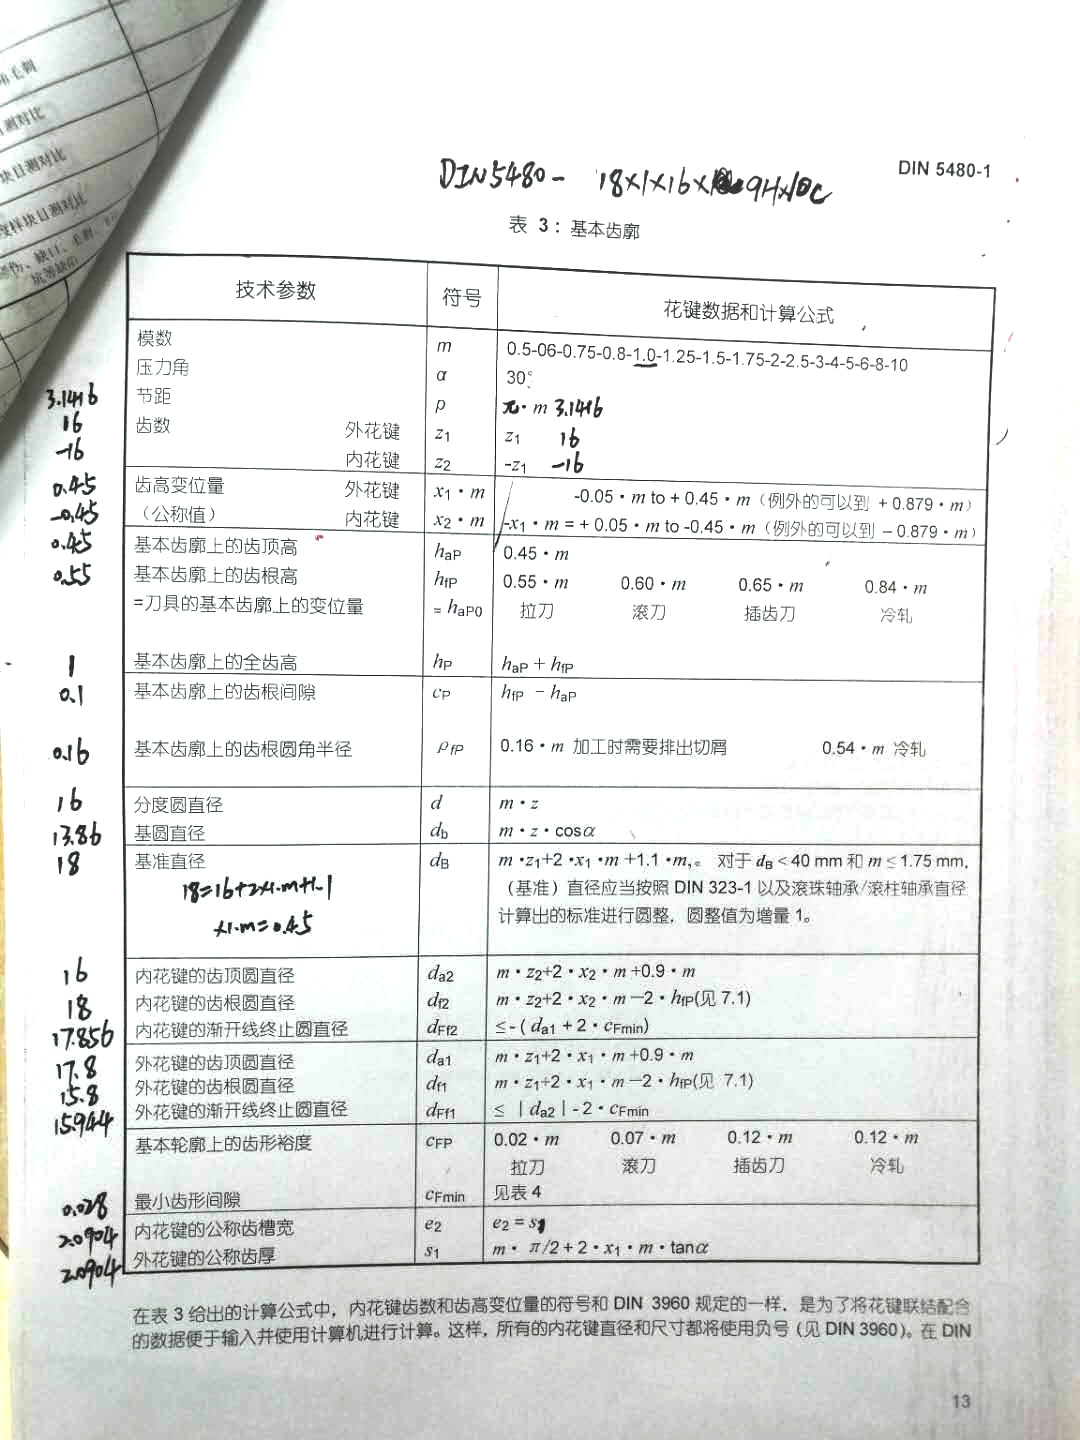 毛刺
测对比
块目测对比
度样块目测对比
缺口、毛刺、
坑等缺陷
DIN 5480-1
DIN5480- 18×1×16× 9H×10C
表 3：基本齿廓
技术参数 符号 花键数据和计算公式
模数 m 0.5-06-0.75-0.8-1.0-1.25-1.5-1.75-2-2.5-3-4-5-6-8-10
压力角 α 30°
3.1416 节距 p π·m 3.1416
16 齿数 外花键 z1 z1 16
-16 内花键 z2 -z1 -16
0.45 齿高变位量 外花键 x1·m -0.05·m to + 0.45·m（例外的可以到 + 0.879·m）
-0.45 （公称值） 内花键 x2·m -x1·m = + 0.05·m to -0.45·m（例外的可以到 – 0.879·m）
0.45 基本齿廓上的齿顶高 haP 0.45·m
0.55 基本齿廓上的齿根高 hfP 0.55·m 0.60·m 0.65·m 0.84·m
=刀具的基本齿廓上的变位量 = haP0 拉刀 滚刀 插齿刀 冷轧
1 基本齿廓上的全齿高 hP haP + hfP
0.1 基本齿廓上的齿根间隙 cP hfP – haP
0.16 基本齿廓上的齿根圆角半径 ρfP 0.16·m 加工时需要排出切屑 0.54·m 冷轧
16 分度圆直径 d m·z
13.86 基圆直径 db m·z·cosα
18 基准直径 dB m·z1+2·x1·m+1.1·m,。 对于 dB < 40 mm 和 m ≤ 1.75 mm,
18=16+2x1.m+1.1 （基准）直径应当按照 DIN 323-1 以及滚珠轴承/滚柱轴承直径
x1.m=0.45 计算出的标准进行圆整，圆整值为增量 1。
16 内花键的齿顶圆直径 da2 m·z2+2·x2·m+0.9·m
18 内花键的齿根圆直径 df2 m·z2+2·x2·m—2·hfP(见 7.1)
17.856 内花键的渐开线终止圆直径 dFf2 ≤-( da1 + 2·cFmin)
17.8 外花键的齿顶圆直径 da1 m·z1+2·x1·m+0.9·m
15.8 外花键的齿根圆直径 df1 m·z1+2·x1·m—2·hfP(见 7.1)
15.944 外花键的渐开线终止圆直径 dFf1 ≤ | da2 | - 2·cFmin
基本轮廓上的齿形裕度 cFP 0.02·m 0.07·m 0.12·m 0.12·m
拉刀 滚刀 插齿刀 冷轧
0.028 最小齿形间隙 cFmin 见表 4
2.0904 内花键的公称齿槽宽 e2 e2 = s1
2.0904 外花键的公称齿厚 s1 m· π/2+2·x1·m·tanα
在表 3 给出的计算公式中，内花键齿数和齿高变位量的符号和 DIN 3960 规定的一样，是为了将花键联结配合
的数据便于输入并使用计算机进行计算。这样，所有的内花键直径和尺寸都将使用负号（见 DIN 3960）。在 DIN
13